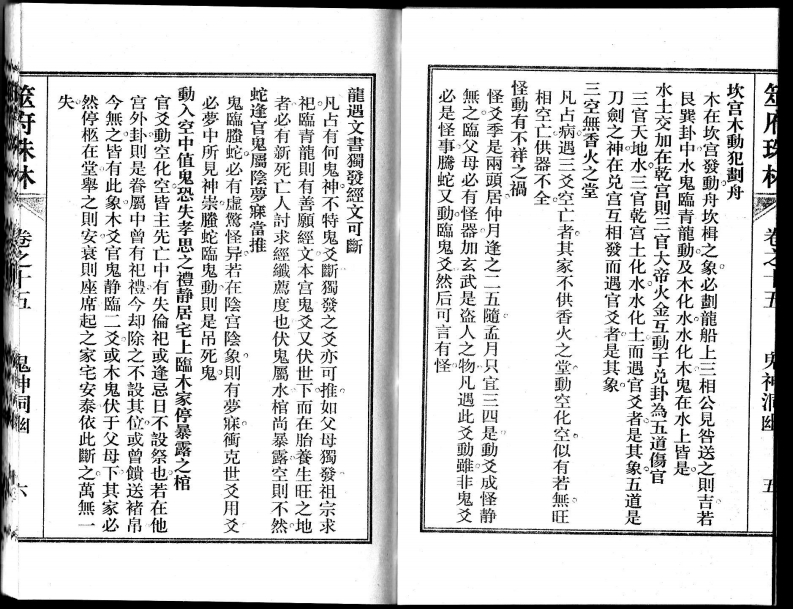 筮府珠林
卷之十五
鬼神洞幽
五
坎宮木動犯劃舟
木在坎宮發動舟坎楫之象必劃龍船上三相公見咎送之則吉若
艮巽卦中水鬼臨青龍動及木化水水化木鬼在水上皆是
水土交加在乾宮則三官大帝火金互動于兌卦為五道傷官
三官天地水三官乾宮土化水水化土而遇官爻者是其象五道是
刀劍之神在兌宮互相發而遇官爻者是其象
三空無香火之堂
凡占病遇三爻空亡者其家不供香火之堂動空化空似有若無旺
相空亡供器不全
怪動有不祥之禍
怪爻季是兩頭居仲月逢之二五隨孟月只宜三四是動爻成怪靜
無之臨父母必有怪器加玄武是盜人之物凡遇此爻動雖非鬼爻
必是怪事騰蛇又動臨鬼爻然后可言有怪
龍遇文書獨發經文可斷
凡占有何鬼神不特鬼爻斷獨發之爻亦可推如父母獨發祖宗求
祀臨青龍則有善願經文本宮鬼爻又伏世下而在胎養生旺之地
者必有新死亡人討求經纖薦度也伏鬼屬水棺尚暴露空則不然
蛇逢官鬼屬陰夢寐當推
鬼臨騰蛇必有虛驚怪异若在陰宮陰象則有夢寐衝克世爻用爻
必夢中所見神祟騰蛇臨鬼動則是吊死鬼
動入空中值鬼恐失孝思之禮靜居宅上臨木家停暴露之棺
官爻動空化空皆主先亡中有失倫祀或逢忌日不設祭也若在他
宮外卦則是眷屬中曾有祀禮今却除之不設其位或曾饋送褚帛
今無之皆有此象木爻官鬼靜臨二爻或木鬼伏于父母下其家必
然停柩在堂舉之則安衰則座席起之家宅安泰依此斷之萬無一
失
筮府珠林
卷之十五
鬼神洞幽
六